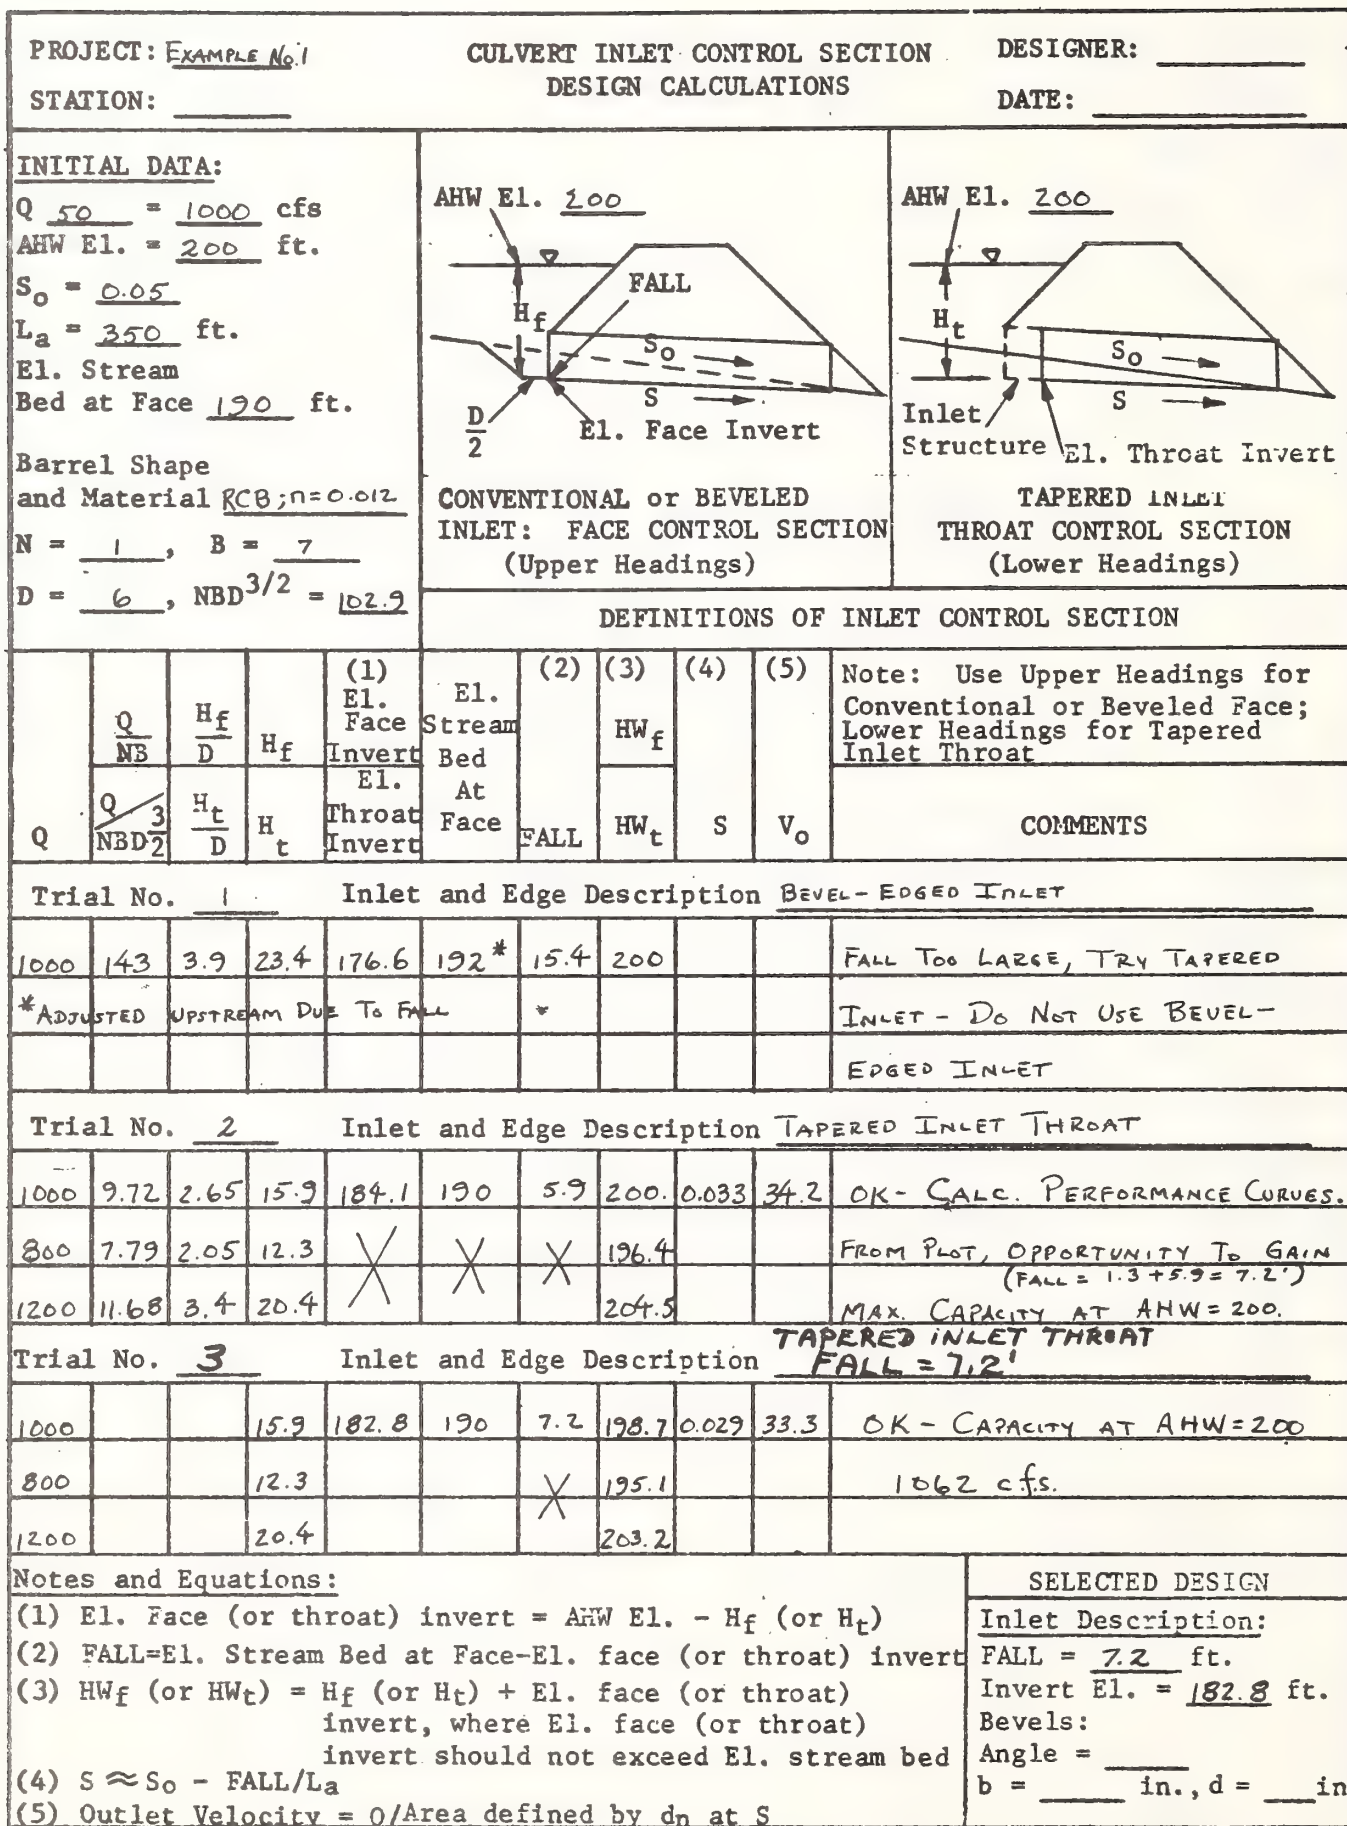 PROJECT: EXAMPLE No. 1
STATION:
CULVERT INLET CONTROL SECTION
DESIGN CALCULATIONS
DESIGNER:
DATE:
INITIAL DATA:
Q 50 = 1000 cfs
AHW El. = 200 ft.
So = 0.05
La = 350 ft.
El. Stream
Bed at Face 190 ft.
Barrel Shape
and Material RCB; n=0.012
N = 1, B = 7
D = 6, NBD3/2 = 102.9
AHW El. 200
FALL
Hf
So
S
D/2
El. Face Invert
CONVENTIONAL or BEVELED
INLET: FACE CONTROL SECTION
(Upper Headings)
AHW El. 200
Ht
So
S
Inlet
Structure
El. Throat Invert
TAPERED INLET
THROAT CONTROL SECTION
(Lower Headings)
DEFINITIONS OF INLET CONTROL SECTION
Q
Q/NB
Q/NBD 3/2
Hf/D
Ht/D
Hf
Ht
(1)
El.
Face
Invert
El.
Throat
Invert
El.
Stream
Bed
At
Face
(2)
FALL
(3)
HWf
HWt
(4)
S
(5)
Vo
Note: Use Upper Headings for
Conventional or Beveled Face;
Lower Headings for Tapered
Inlet Throat
COMMENTS
Trial No. 1 Inlet and Edge Description BEVEL-EDGED INLET
1000 143 3.9 23.4 176.6 192* 15.4 200 FALL TOO LARGE, TRY TAPERED
*ADJUSTED UPSTREAM DUE TO FALL INLET - DO NOT USE BEVEL-
EDGED INLET
Trial No. 2 Inlet and Edge Description TAPERED INLET THROAT
1000 9.72 2.65 15.9 184.1 190 5.9 200. 0.033 34.2 OK- CALC. PERFORMANCE CURVES.
800 7.79 2.05 12.3 196.4 FROM PLOT, OPPORTUNITY TO GAIN
(FALL = 1.3 + 5.9 = 7.2')
1200 11.68 3.4 20.4 204.5 MAX. CAPACITY AT AHW = 200.
Trial No. 3 Inlet and Edge Description TAPERED INLET THROAT
FALL = 7.2'
1000 15.9 182.8 190 7.2 198.7 0.029 33.3 OK - CAPACITY AT AHW=200
800 12.3 195.1 1062 c.f.s.
1200 20.4 203.2
Notes and Equations:
(1) El. Face (or throat) invert = AHW El. - Hf (or Ht)
(2) FALL=El. Stream Bed at Face-El. face (or throat) invert
(3) HWf (or HWt) = Hf (or Ht) + El. face (or throat)
invert, where El. face (or throat)
invert should not exceed El. stream bed
(4) S ≈ So - FALL/La
(5) Outlet Velocity = Q/Area defined by dn at S
SELECTED DESIGN
Inlet Description:
FALL = 7.2 ft.
Invert El. = 182.8 ft.
Bevels:
Angle =
b = in., d = in